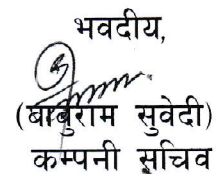 भवदीय,
(बाबुराम सुवेदी)
कम्पनी सचिव